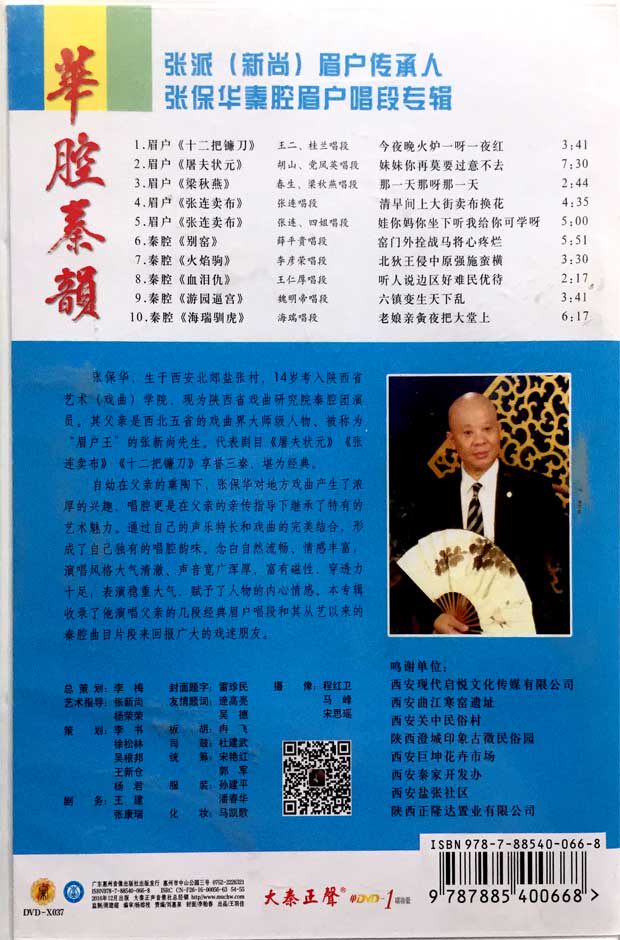 華腔秦韻
张派（新尚）眉户传承人
张保华秦腔眉户唱段专辑
1.眉户《十二把镰刀》 王二、桂兰唱段 今夜晚火炉一呀一夜红 3:41
2.眉户《屠夫状元》 胡山、党凤英唱段 妹妹你再莫要过意不去 7:30
3.眉户《梁秋燕》 春生、梁秋燕唱段 那一天那呀那一天 2:44
4.眉户《张连卖布》 张连唱段 清早间上大街卖布换花 4:35
5.眉户《张连卖布》 张连、四姐唱段 娃你妈你坐下听我给你可学呀 5:00
6.秦腔《别窑》 薛平贵唱段 窑门外拴战马将心疼烂 5:51
7.秦腔《火焰驹》 李彦荣唱段 北狄王侵中原强施蛮横 3:30
8.秦腔《血泪仇》 王仁厚唱段 听人说边区好难民优待 2:17
9.秦腔《游园逼宫》 魏明帝唱段 六镇变生天下乱 3:41
10.秦腔《海瑞驯虎》 海瑞唱段 老娘亲夤夜把大堂上 6:17
张保华，生于西安北郊盐张村，14岁考入陕西省
艺术（戏曲）学院，现为陕西省戏曲研究院秦腔团演
员。其父亲是西北五省的戏曲界大师级人物、被称为
“眉户王”的张新尚先生。代表剧目《屠夫状元》《张
连卖布》《十二把镰刀》享誉三秦，堪为经典。
自幼在父亲的熏陶下，张保华对地方戏曲产生了浓
厚的兴趣，唱腔更是在父亲的亲传指导下继承了特有的
艺术魅力。通过自己的声乐特长和戏曲的完美结合，形
成了自己独有的唱腔韵味。念白自然流畅、情感丰富，
演唱风格大气清澈、声音宽广浑厚，富有磁性，穿透力
十足，表演稳重大气，赋予了人物的内心情感。本专辑
收录了他演唱父亲的几段经典眉户唱段和其从艺以来的
秦腔曲目片段来回报广大的戏迷朋友。
总策划：李梅 封面题字：雷珍民 摄像：程红卫
艺术指导：张新尚 友情题词：逄高亮 马峰
杨荣荣 吴德 宋思瑶
策划：李书 板胡：冉飞
徐松林 司鼓：杜建武
吴根邦 统筹：宋艳红
王新仓 郭军
杨君 服装：孙建平
剧务：王建 潘春华
张康瑞 化妆：马凯歌
鸣谢单位：
西安现代启悦文化传媒有限公司
西安曲江寒窑遗址
西安关中民俗村
陕西澄城印象古徵民俗园
西安巨坤花卉市场
西安秦家开发办
西安盐张社区
陕西正隆达置业有限公司
DVD-X037
广东惠州音像出版社出版发行 惠州市中山公园三号 0752-2228321
ISBN978-7-88540-066-8 ISRC CN-F28-16-00056-63 54-55
2016年12月出版 大秦正声音像社总经销 http://www.snchw.com
大秦正聲 单DVD-1 碟装
ISBN 978-7-88540-066-8
9 787885 400668 >